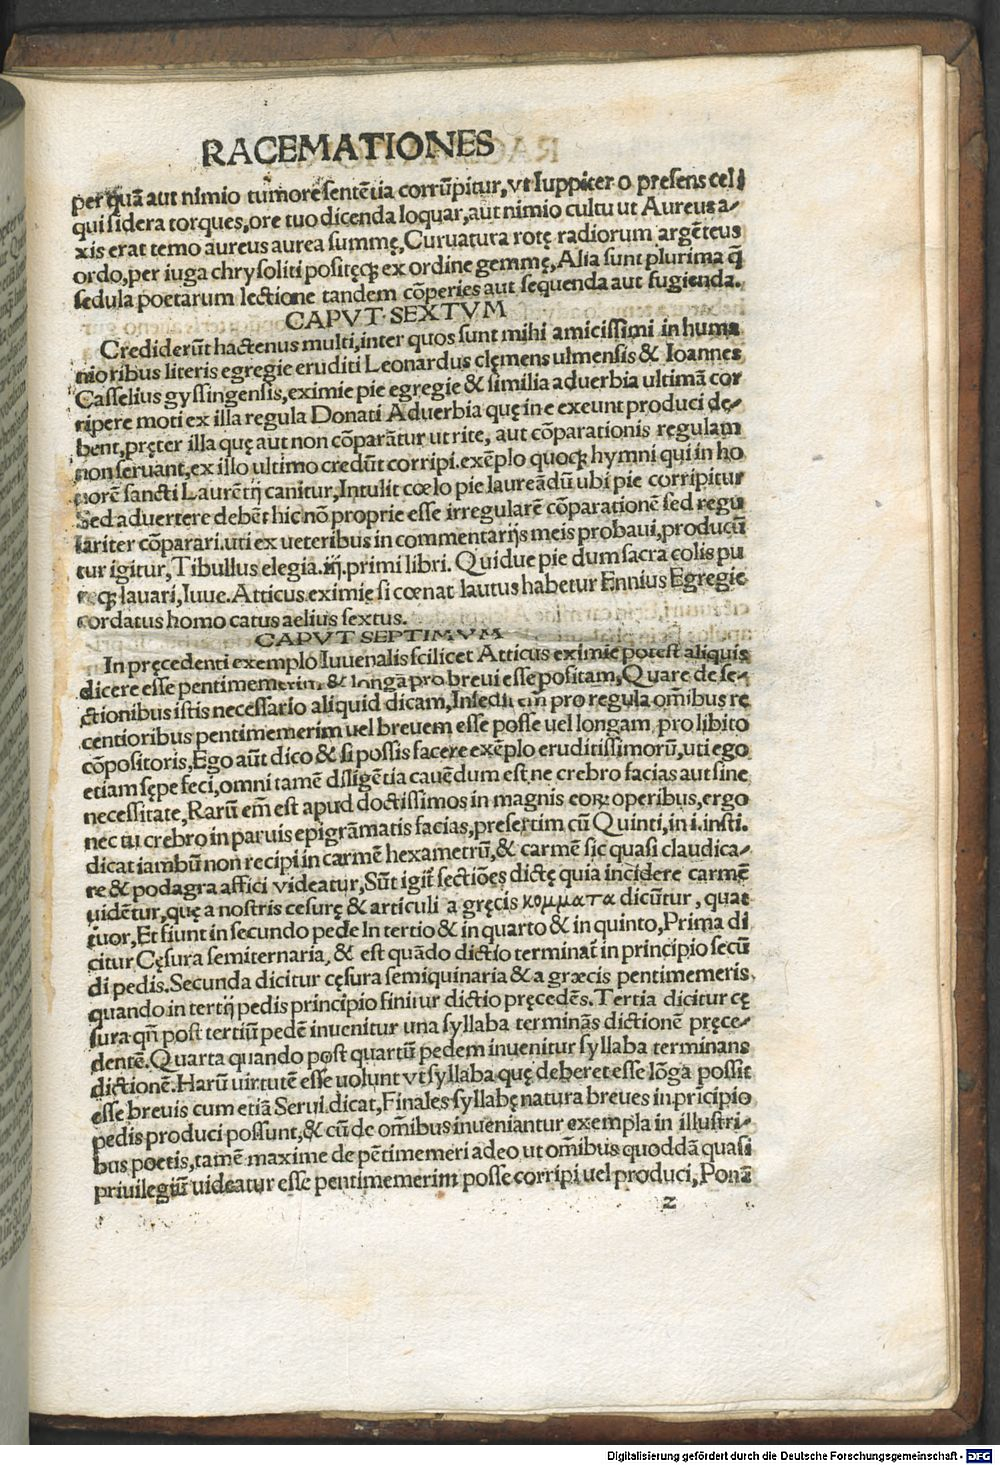 RACEMATIONES
per quã aut nimio tumore sentẽtia corrũpitur, vt Iuppiter o presens celi
qui sidera torques, ore tuo dicenda loquar, aut nimio cultu ut Aureus a-
xis erat temo aureus aurea summę, Curuatura rotę radiorum argẽteus
ordo, per iuga chrysoliti positęq; ex ordine gemmę, Alia sunt plurima q̃
sedula poetarum lectione tandem cõperies aut sequenda aut fugienda.
CAPVT SEXTVM
Crediderũt hactenus multi, inter quos sunt mihi amicissimi in huma
nioribus literis egregie eruditi Leonardus clęmens ulmensis & Ioannes
Casselius gyssingensis, eximie pie egregie & similia aduerbia ultimã cor
ripere moti ex illa regula Donati Aduerbia quę in e exeunt produci de-
bent, pręter illa quę aut non cõparãtur ut rite, aut cõparationis regulam
non seruant, ex illo ultimo credũt corripi. exẽplo quoq; hymni qui in ho
norẽ sancti Laurẽtij canitur, Intulit cœlo pie laureãdũ ubi pie corripitur
Sed aduertere debẽt hic nõ proprie esse irregularẽ cõparationẽ sed regu
lariter cõparari. uti ex ueteribus in commentarijs meis probaui, producũ
tur igitur, Tibullus elegia .iij. primi libri. Quidue pie dum sacra colis pu
req; lauari, Iuue. Atticus eximie si cœnat lautus habetur Ennius Egregie
cordatus homo catus aelius sextus.
CAPVT SEPTIMVM
In pręcedenti exemplo Iuuenalis scilicet Atticus eximie potest aliquis
dicere esse pentimemerim & longã pro breui esse positam, Quare de se-
ctionibus istis necessario aliquid dicam, Insedit em̃ pro regula om̃ibus re
centioribus pentimemerim uel breuem esse posse uel longam pro libito
cõpositoris, Ego aũt dico & si possis facere exẽplo eruditissimorũ, uti ego
etiam sępe feci, omni tamẽ diligẽtia cauẽdum est ne crebro facias aut sine
necessitate, Rarũ em̃ est apud doctissimos in magnis eorꝝ operibus, ergo
nec tu crebro in paruis epigrãmatis facias, presertim cũ Quinti, in i. insti.
dicat iambũ non recipi in carmẽ hexametrũ, & carmẽ sic quasi claudica-
re & podagra affici videatur, Sũt igit̃ sectiões dictę quia incidere carmẽ
uidẽtur, quę a nostris cesurę & articuli a gręcis κομματα dicũtur, quat
tuor, Et fiunt in secundo pede In tertio & in quarto & in quinto, Prima di
citur Cęsura semiternaria, & est quãdo dictio terminat̃ in principio secũ
di pedis. Secunda dicitur cęsura semiquinaria & a græcis pentimemeris
quando in tertij pedis principio finitur dictio pręcedẽs. Tertia dicitur cę
sura qñ post tertiũ pedẽ inuenitur una syllaba terminãs dictionẽ pręce-
dentẽ. Quarta quando post quartũ pedem inuenitur syllaba terminans
dictionẽ. Harũ uirtutẽ esse uolunt vt syllaba quę deberet esse lõga possit
esse breuis cum etiã Serui. dicat, Finales syllabę natura breues in pricipio
pedis produci possunt, & cũ de om̃ibus inueniantur exempla in illustri-
bus poetis, tamẽ maxime de pẽtimemeri adeo ut om̃ibus quoddã quasi
priuilegiũ uideatur esse pentimemerim posse corripi uel produci, Ponã
z
Digitalisierung gefördert durch die Deutsche Forschungsgemeinschaft - DFG